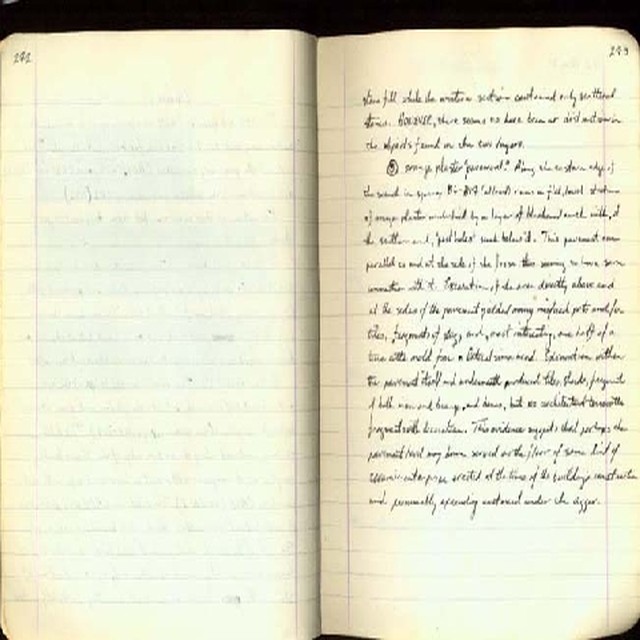 242
243
stone fill, while the western section contained only scattered
stones. However, there seems to have been no distinction in
the objects found in the two layers.
③ orange plaster "pavement." Along the eastern edge of
the trench in spring
of orange plaster underlaid by a layer of blackened earth with, at
the southern end, "post holes" sunk below it. This pavement runs
parallel to and at the side of the
with it. Excavation of the area directly above and
at the sides of the pavement yielded many misfired pots and/or
tiles, fragments of slag, and, most interesting, one half of a
terra cotta mold for a lateral sima head. Excavation within
the pavement itself and underneath produced tiles, sherds, fragments
of both iron and bronze, and bones, but no architectural terracotta
fragments with decoration. This evidence suggests that perhaps the
pavement may have served as the floor of some kind of
ceramic enterprise erected at the time of the building's construction
and presumably extending eastward under the